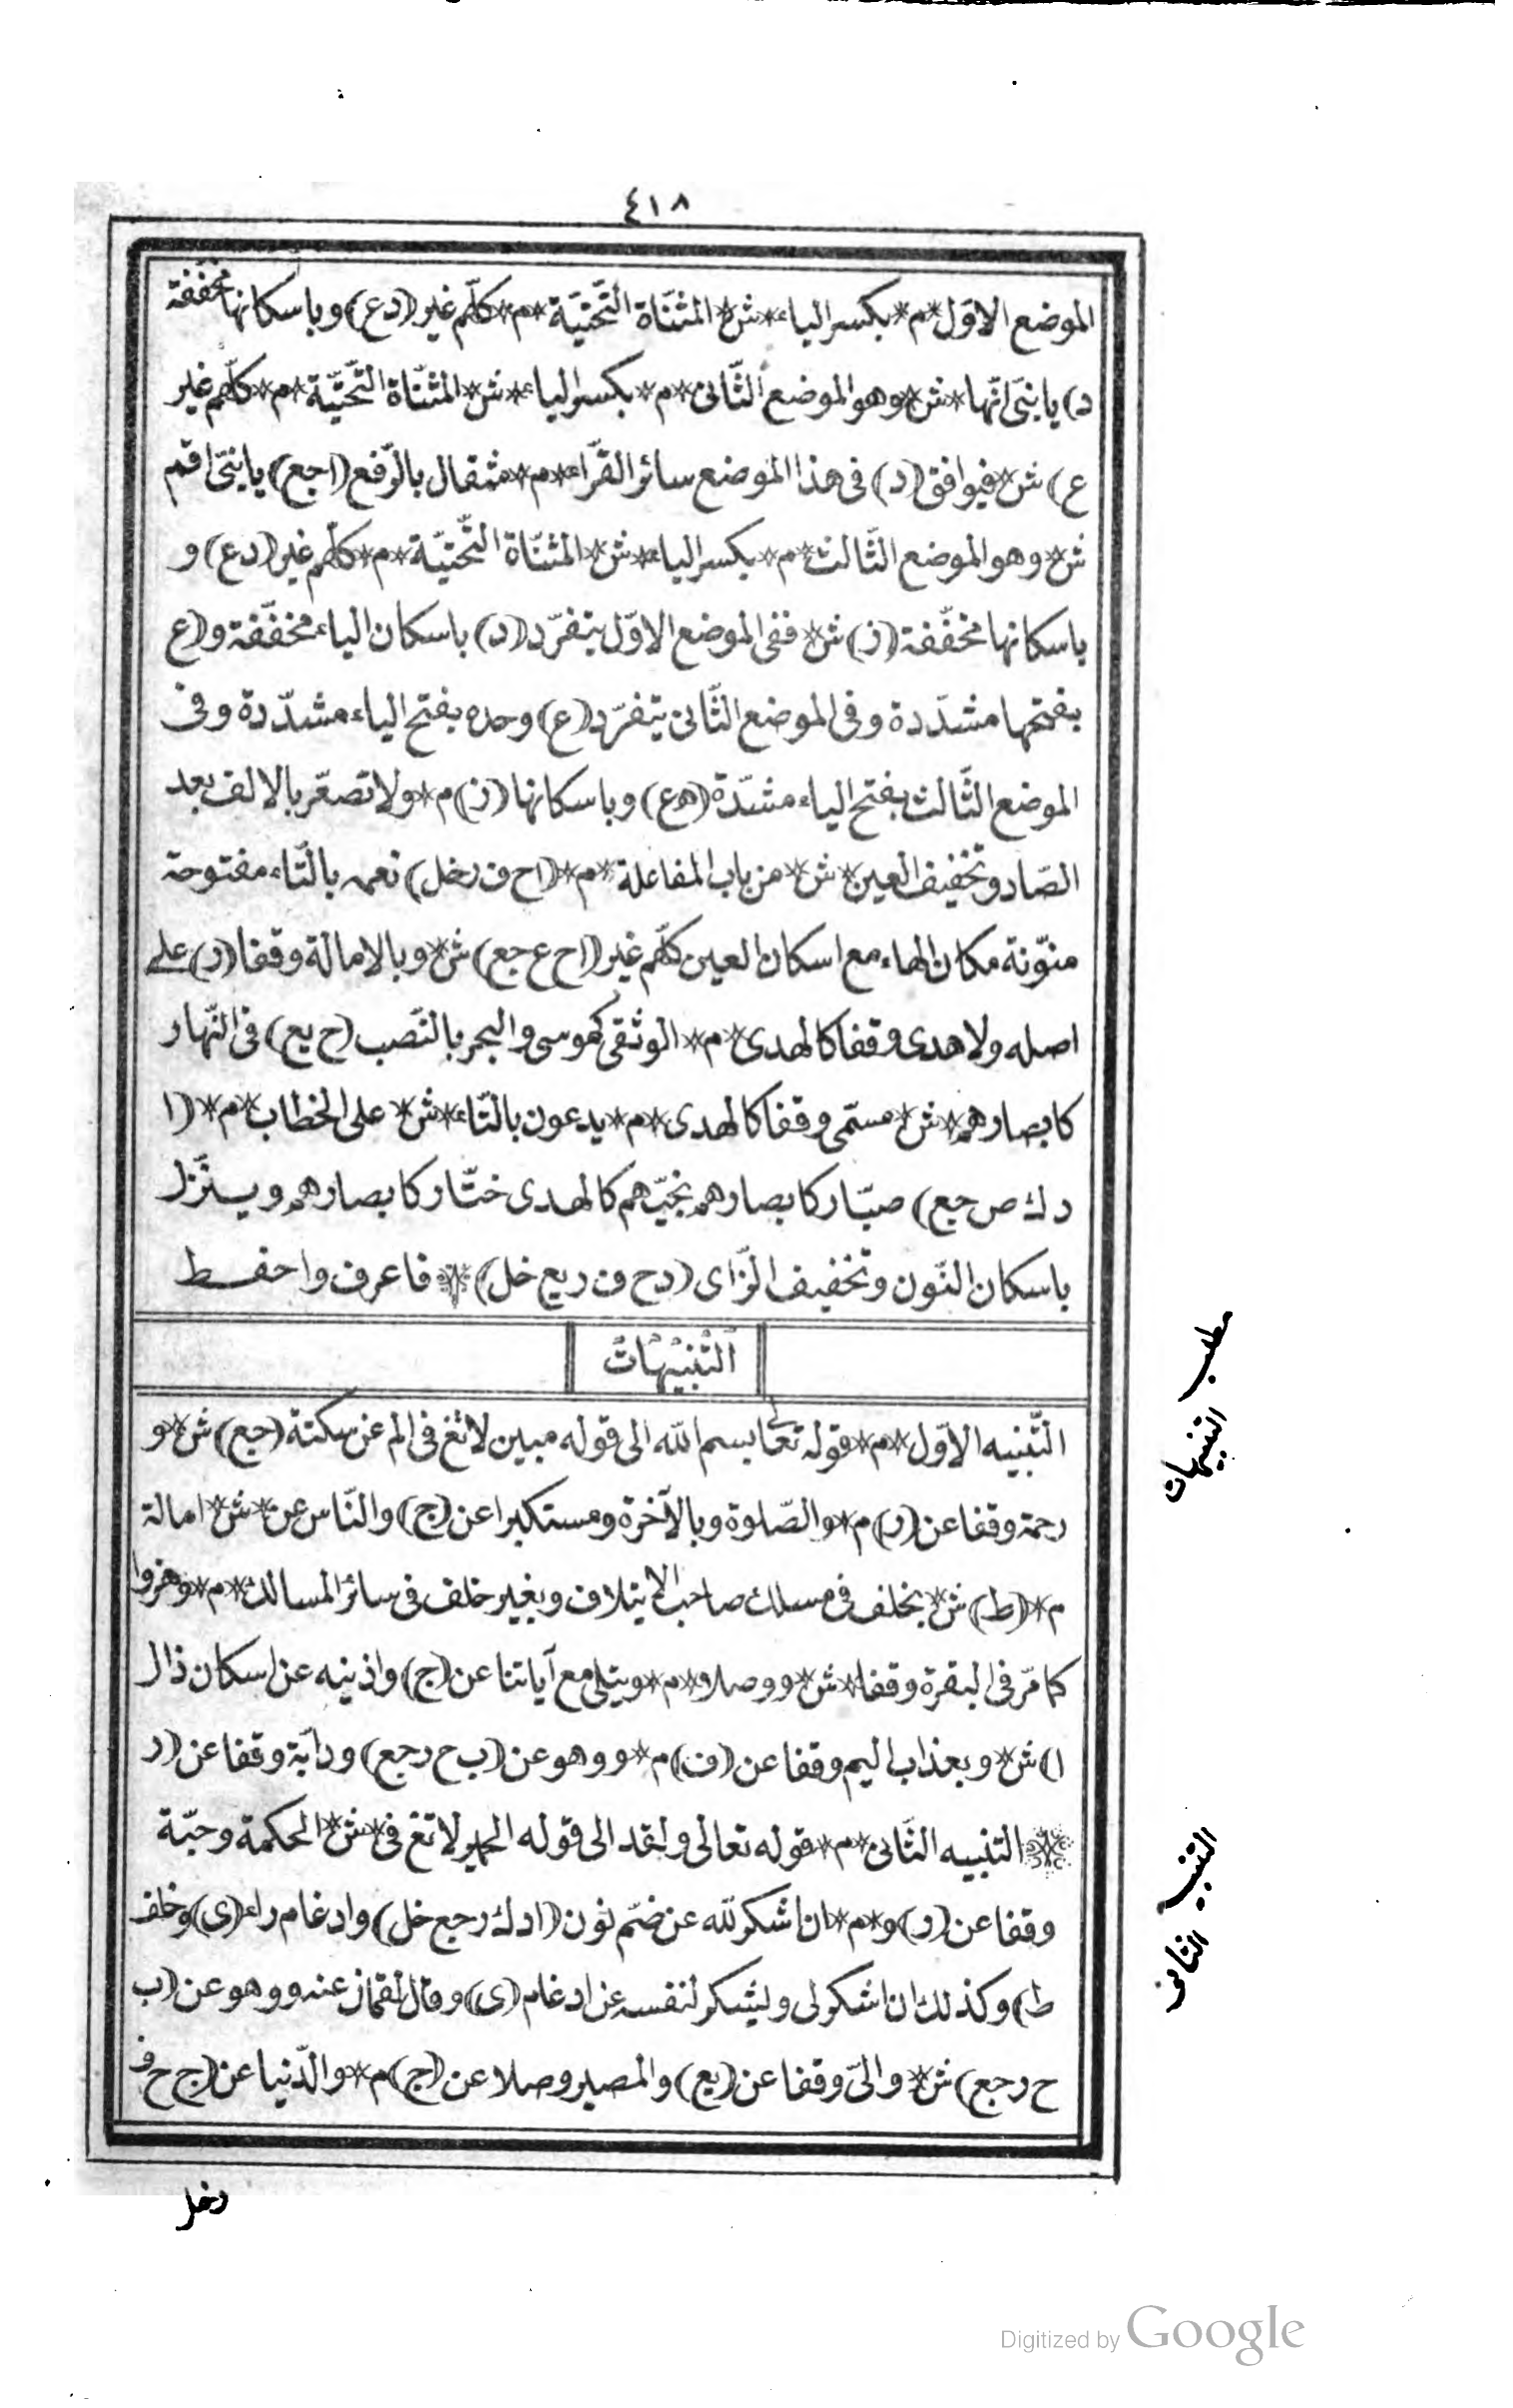 ٤١٨
الموضع الاوّل * م * بكسر الياء * ش * المثنّاة التّحتيّة * م * كلّهم غير (دع) وباسكانها مخفّفة
د) يا بنىّ انّها * ش * وهو الموضع الثّانى * م * بكسر الياء * ش * المثنّاة التّحتيّة * م * كلّهم غير
ع) ش * فيوافق (د) فى هذا الموضع سائر القرّاء * م * مثقال بالرّفع (اجع) يا بنىّ اقم
ش * وهو الموضع الثّالث * م * بكسر الياء * ش * المثنّاة التّحتيّة * م * كلّهم غير (دع) و
باسكانها مخفّفة (ز) ش * ففى الموضع الاوّل يتفرّد (د) باسكان الياء مخفّفة و (ع
بفتحها مشدّدة وفى الموضع الثّانى يتفرّد (ع) وحده بفتح الياء مشدّدة وفى
الموضع الثّالث بفتح الياء مشدّة (هع) وباسكانها (ز) م * ولا تصعّر بالالف بعد
الصّاد وتخفيف العين * ش * من باب المفاعلة * م * (اح ف رخل) نعمه بالتّاء مفتوحة
منوّنة مكان الهاء مع اسكان العين كلّهم غير (اح ع جع) ش * وبالامالة وقفا (ر) على
اصله ولا هدى وقفا كالهدى * م * الوثقى كموسى والبحر بالنّصب (ح يع) فى النّهار
كابصارهم * ش * مسمّى وقفا كالهدى * م * يدعون بالتّاء * ش * على الخطاب * م * (ا
د ك ص جع) صبّار كابصارهم نجّيهم كالهدى ختّار كابصارهم وينزّل
باسكان النّون وتخفيف الزّاى (دح ف ر يع خل) * فاعرف واحفظ
اَلتَّنْبِيهَاتُ
مطلب التنبيهات
التّنبيه الاوّل * م * قوله تعالى بسم الله الى قوله مبين لا تغ فى الم عن سكتة (جع) ش * و
رحمة وقفا عن (ر) م * والصّلوة وبالآخرة ومستكبرا عن (ج) والنّاس عن * ش * امالة
م * (ط) ش * بخلف فى مسلك صاحب الايتلاف وبغير خلف فى سائر المسالك * م * وهزوا
كما مرّ فى البقرة وقفا * ش * ووصلا * م * ويتلى مع آياتنا عن (ج) واذنيه عن اسكان ذال
ا) ش * وبعذاب اليم وقفا عن (ف) م * ووهو عن (ب ح ر جع) ودابّة وقفا عن (ر
* التنبيه الثّانى * م * قوله تعالى ولقد الى قوله الحمير لا تغ فى * ش * الحكمة وحبّة
التنبيه الثانى
وقفا عن (ر) و * م * ان اشكر لله عن ضمّ نون (ا د ك ر جع خل) وادغام راء (ى) وخلف
ط) وكذلك ان اشكر لى وليشكر لنفسه عن ادغام (ى) وقال لقمان عنه ووهو عن (ب
ح ر جع) ش * والىّ وقفا عن (يع) والمصير وصلا عن (ج) م * والدّنيا عن (ج ح ف
رخل
Digitized by Google